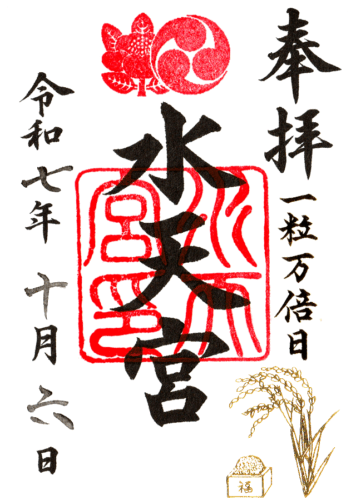 奉拝
一粒万倍日
水天宮
水天宮印
令和七年 十月六日
福